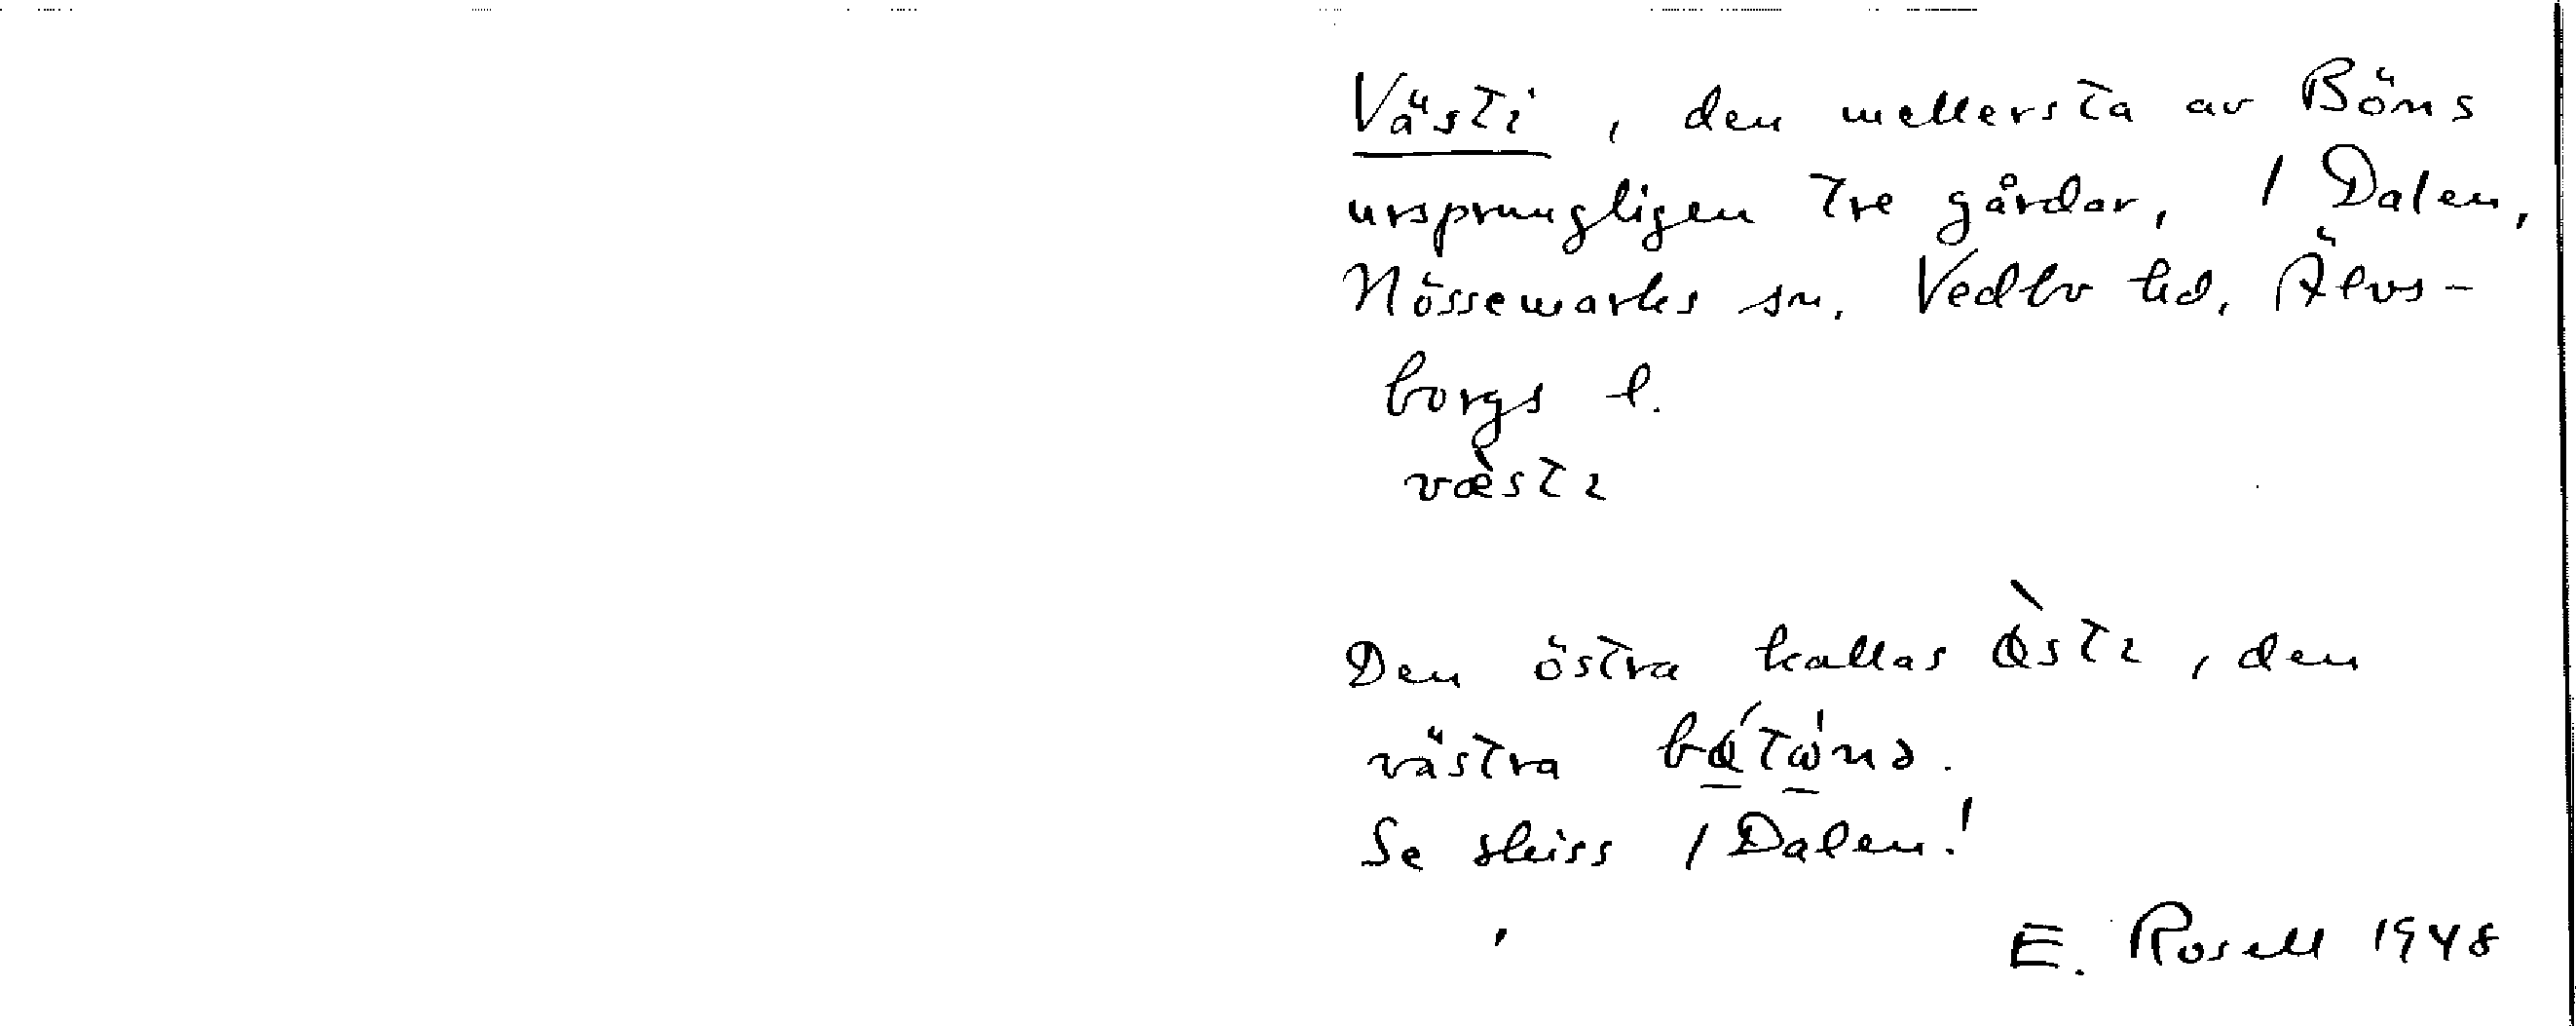 Västi, den mellersta av Böns
ursprungligen tre gårdar, / Dalen,
Nössemarks sn. Vedbo hd. Älvs-
borgs l.
væ̀stɩ
Den östra kallas Q̀stɩ, den
västra
Se skiss / Dalen!
E. Rosell 1948